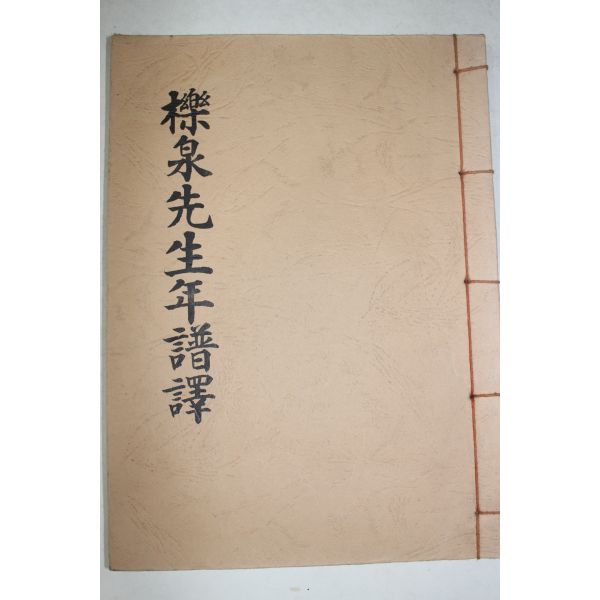 櫟泉先生年譜譯